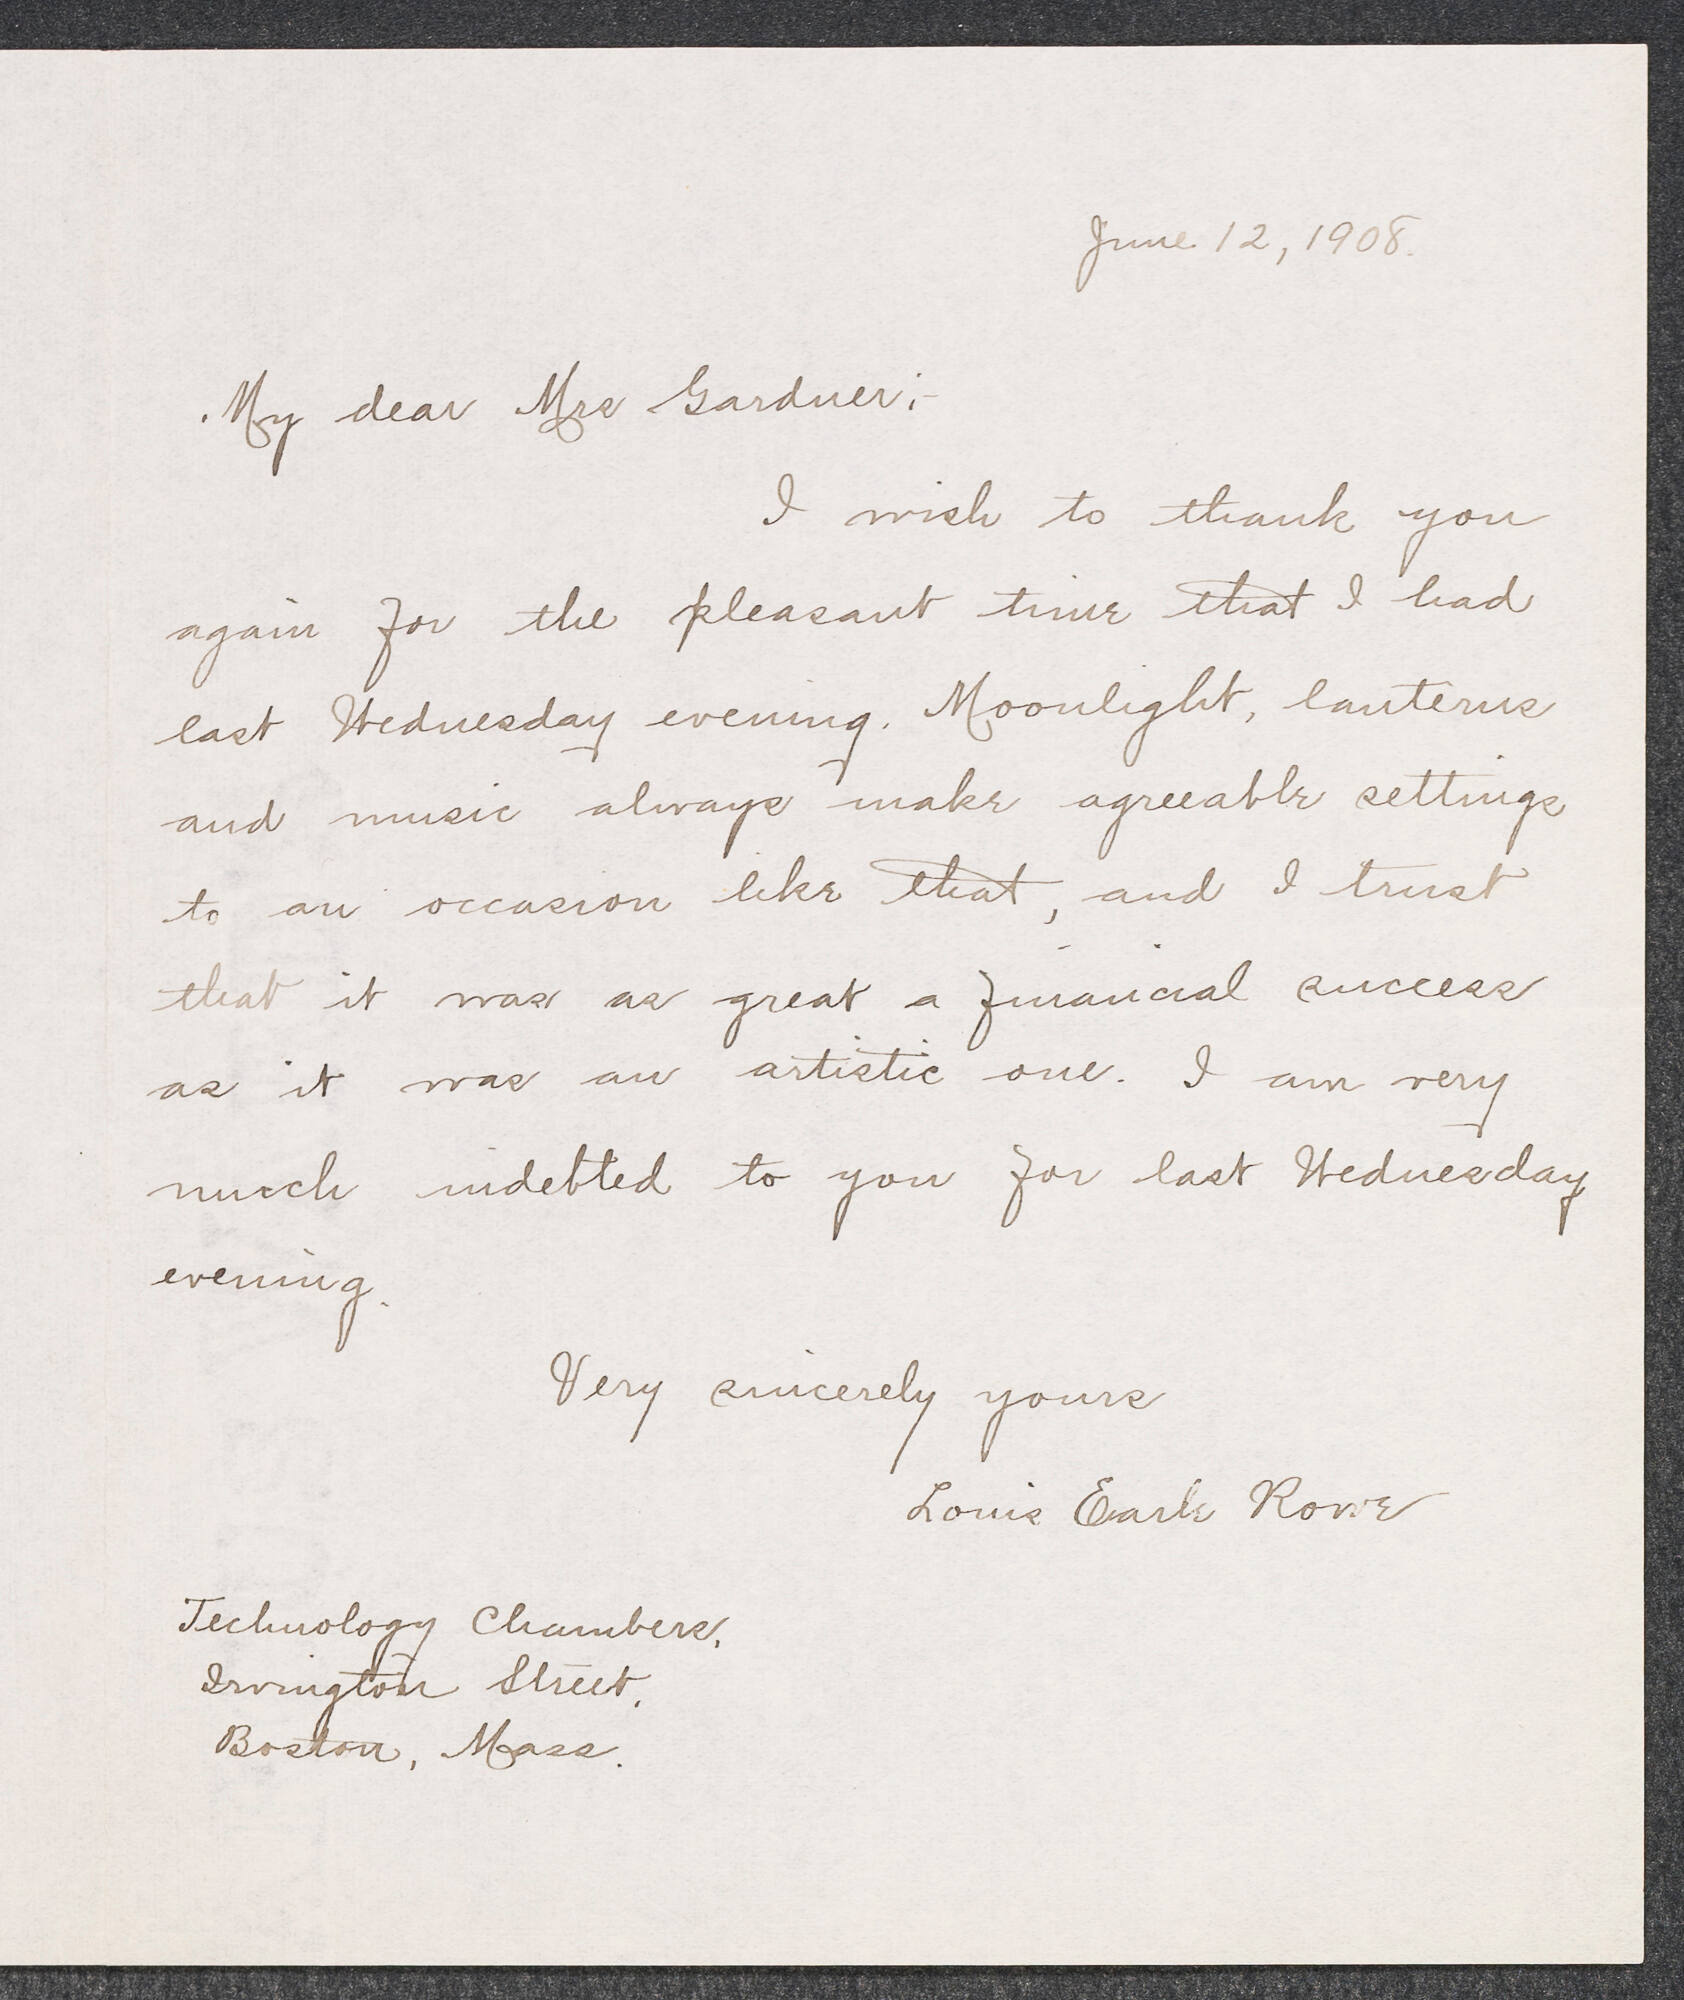 June 12, 1908.
My dear Mrs Gardner;-
I wish to thank you
again for the pleasant time that I had
last Wednesday evening. Moonlight, lanterns
and music always make agreeable settings
to an occasion like that, and I trust
that it was as great a financial success
as it was an artistic one. I am very
much indebted to you for last Wednesday
evening.
Very sincerely yours
Louis Earle Rowe
Technology Chambers,
Irvington Street,
Boston, Mass.